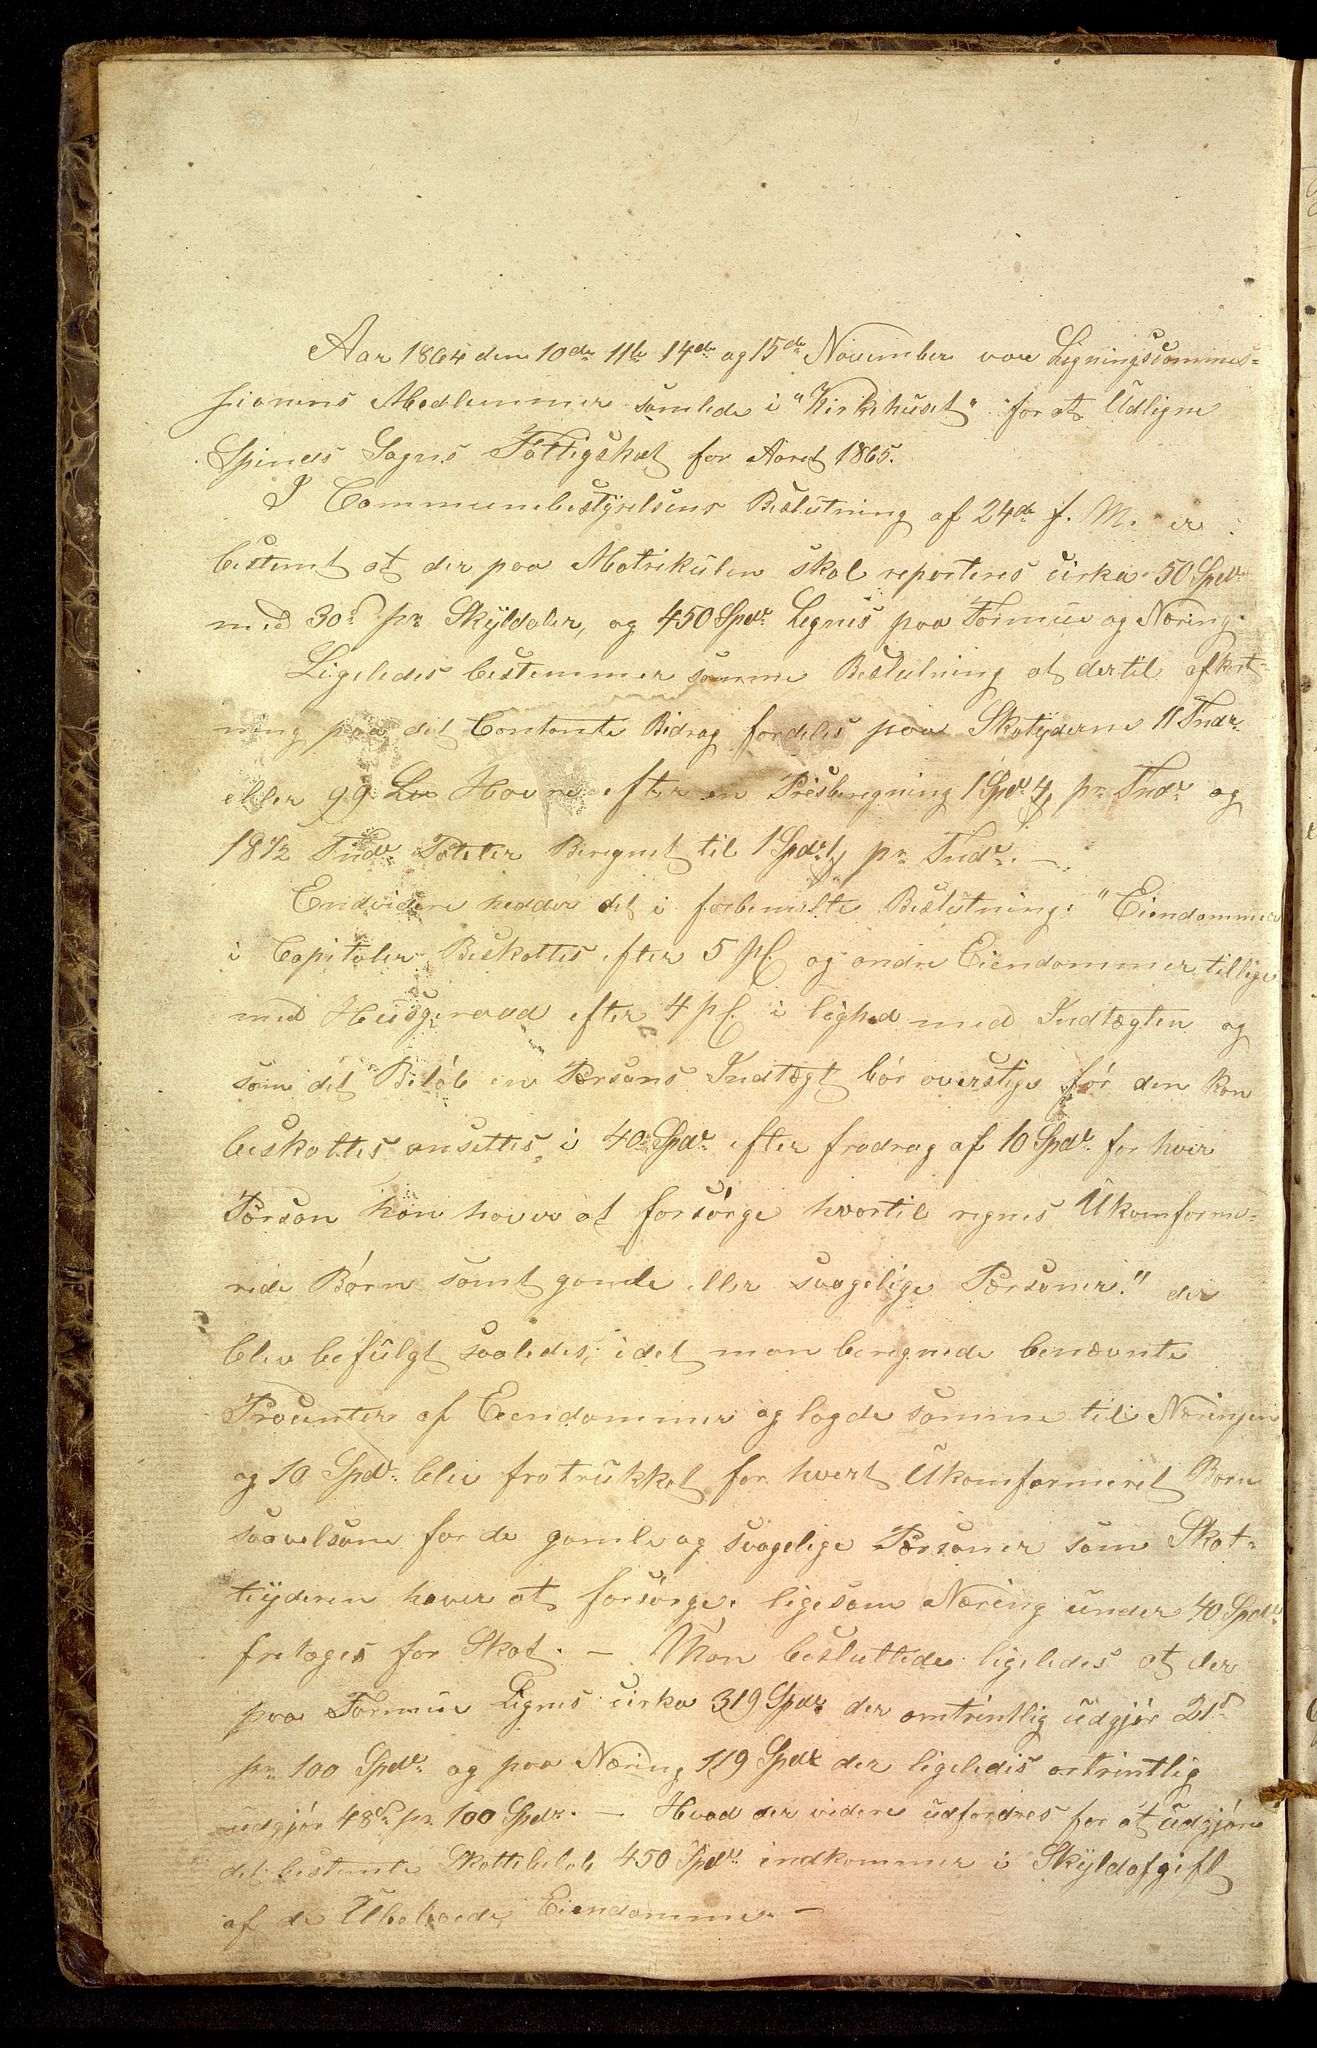 Aar 1864 den 10de 11te 14de og 15de November var Ligningscommis-
sionens Medlemmer samlede i "Kirkehuset" for at Udligne
Spinds Sogns Fattigskat for Aaret 1865.
I Communebestyrelsens Beslutning af 24de f. M. er
bestemt at der paa Matrikulen skal reparteres cirka 50 Spdr
med 30s pr Skylddaler, og 450 Spdr Lignes paa Formue og Næring.
Ligeledes bestemmer samme Beslutning at dertil afkort-
ning paa det Contante Bidrag fordeles paa Skatyderne 11 Tndr
eller 99 Havre efter en Prisberegning 1 Spdr pr Tndr og
18 1/2 Tndr Poteter Beregnet til 1 Spdr pr Tndr. —
Endvidere hedder det i forbemelte Beslutning: "Eiendommer
i Capitaler Beskattes efter 5 pC. og andre Eiendommer tillige
med Huusgeraad efter 4 pC. i lighed med Indtægten og
som det Beløb en Persons Indtægt bør overstige før den kan
beskattes ansettes, i 40 Spdr efter fradrag af 10 Spdr for hver
Person han haver at forsørge hvortil regnes Ukomforme-
rede Børn samt gamle eller svagelige Personer." der
blev befulgt saaledes, idet man beregnede benævnte
Procenter af Eiendommer og lagde samme til Næringen
og 10 Spdr blev fratrukket for hvert Ukomformeret Barn
saavelsom for de gamle og svagelige Personer som Skat-
teyderen haver at forsørge, ligesom Næring under 40 Spdr
fretages for Skat. — Man besluttede ligeledes at der
paa Formue Lignes cirka 319 Spdr der omtrintlig udgjør 21s
pr 100 Spdr og paa Næring 119 Spdr der ligeledes omtrintlig
udgjør 48s pr 100 Spdr. — Hvad der videre udfordres for at udgjøre
det bestemte Skattebeløb 450 Spdr indkommer i Skyldafgift
af de Ubeboede Eiendomme. —